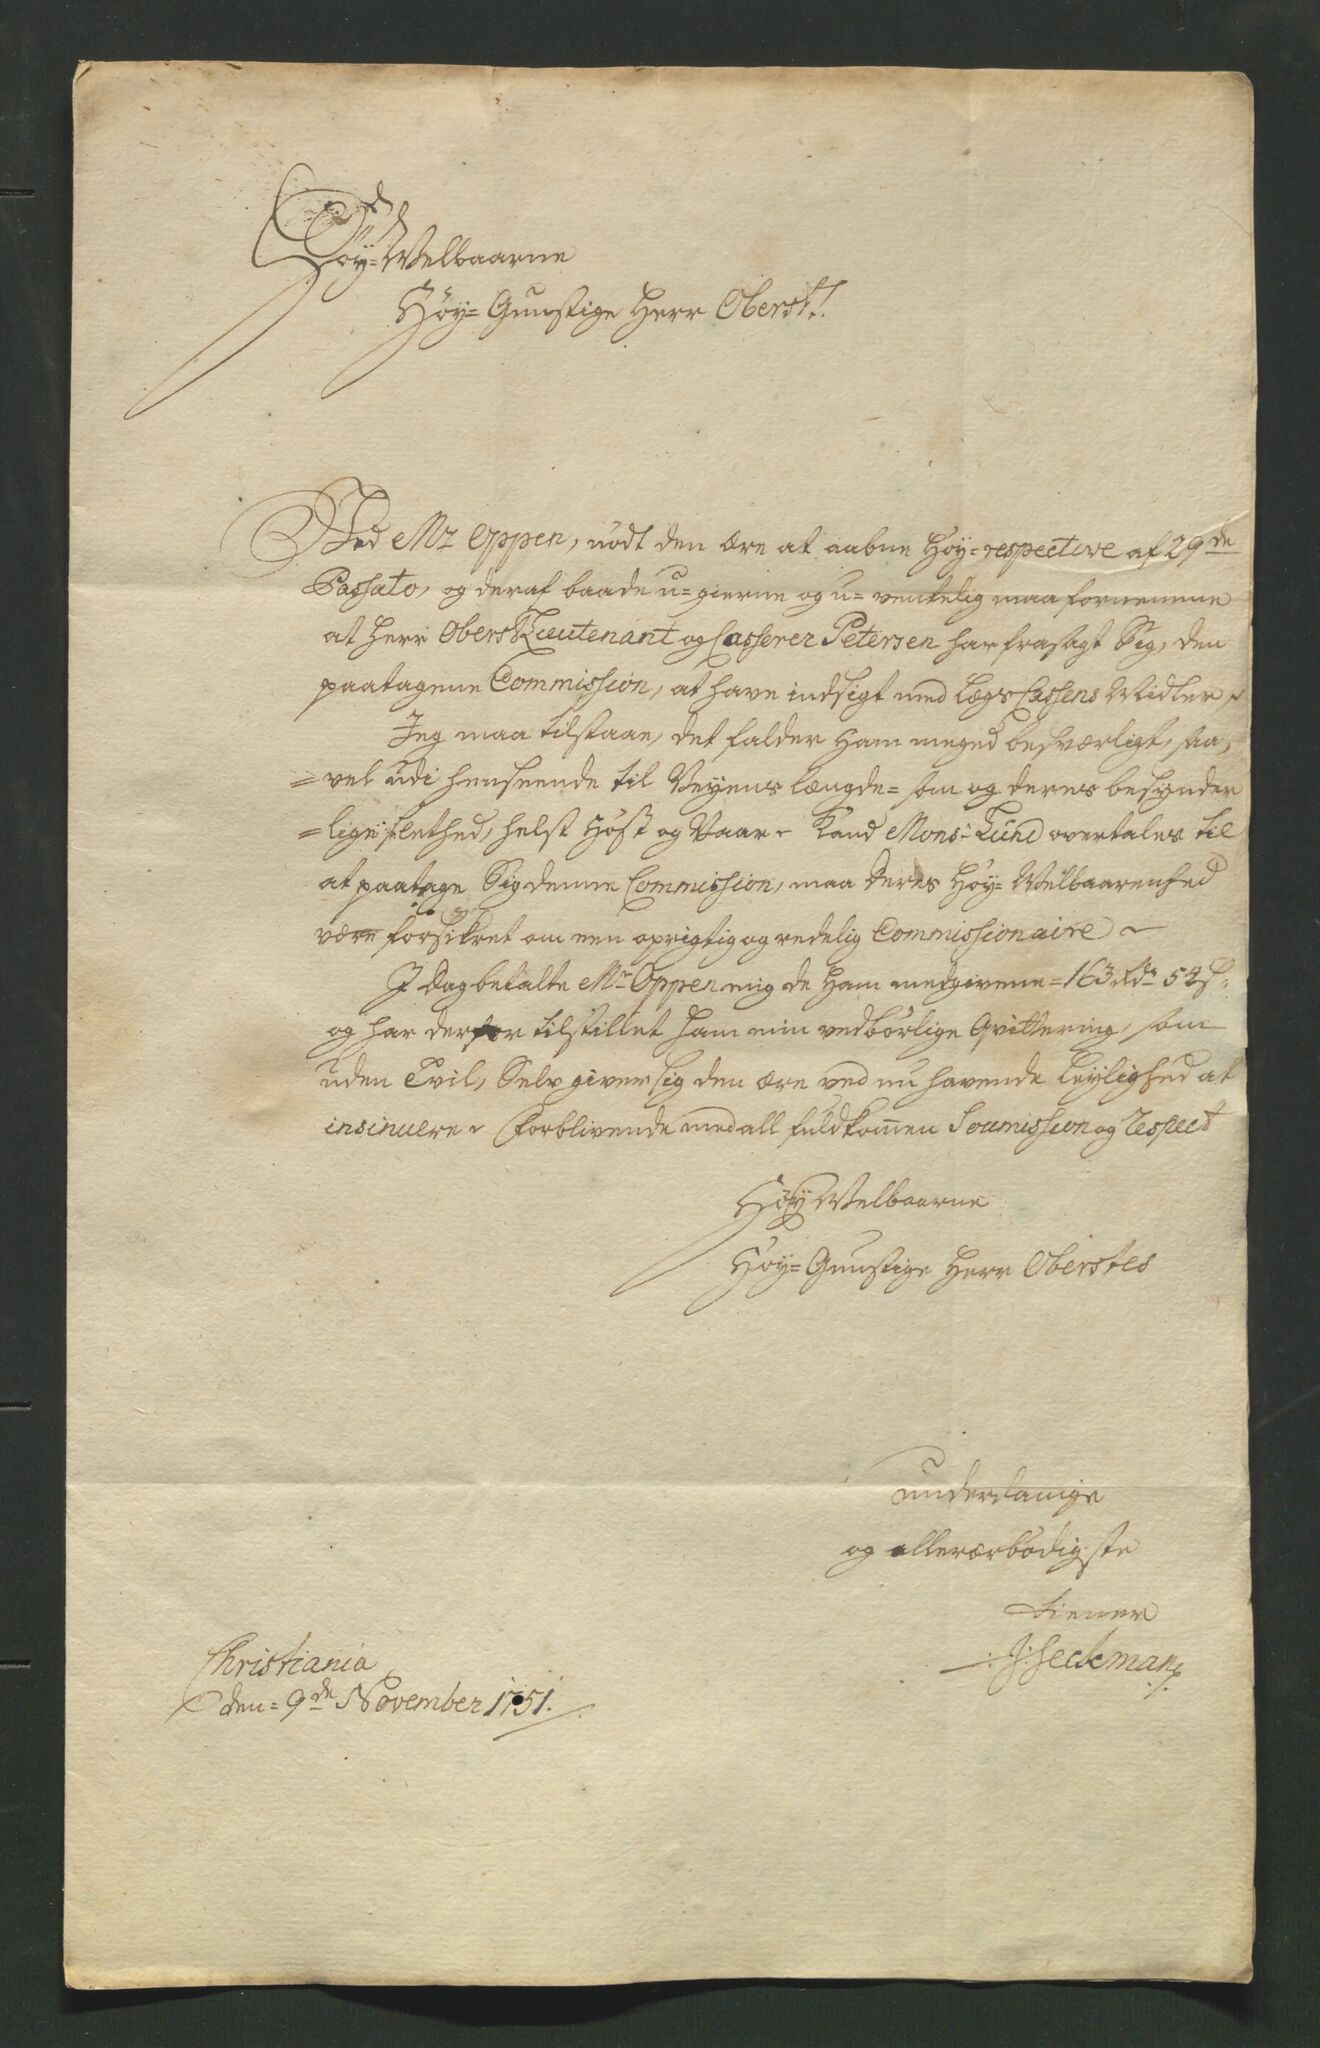 Høy-Welbaarne
Høy-Gunstige Herr Oberst!
Ved Mr Oppen, nødt den ære at aabne Høy-respective af 29de
Passato, og deraf baade u-gierne og u-ventelig maa fornemme
at Herr OberstLieutenant og Casserer Petersen har frasagt Sig, den
paatagene Commission, at have indsigt med Lægs Cassens Midler
Jeg maa tilstaae, det falder ham meged besværligt, saa,
=vel udi henseende til Veyens længde- som og deres besynder
=lige slethed, helst Høst og Vaar - Kand Monsr Lund overtales til
at paatage Sig denne Commission, maa Deres Høy-Welbaarenhed
være forsikret om een oprigtig og redelig Commissionaire ~
I Dag betalte Mr Oppen mig de ham medgivene - 163 Rdr 54 s.
og har derfor tilstillet ham min vedbørlige Qvittering, som
uden Tvil, Selv giver sig den ære ved nu havende Leylighed at
insinuere - Forblivende med all fuldkom̄en Soumission og respect
Høy Welbaarne
Høy-Gunstige Herr Oberstes
underdanige
og allerærbødigste
tiener
J: Heckman
Christiania
den = 9de November 1751.